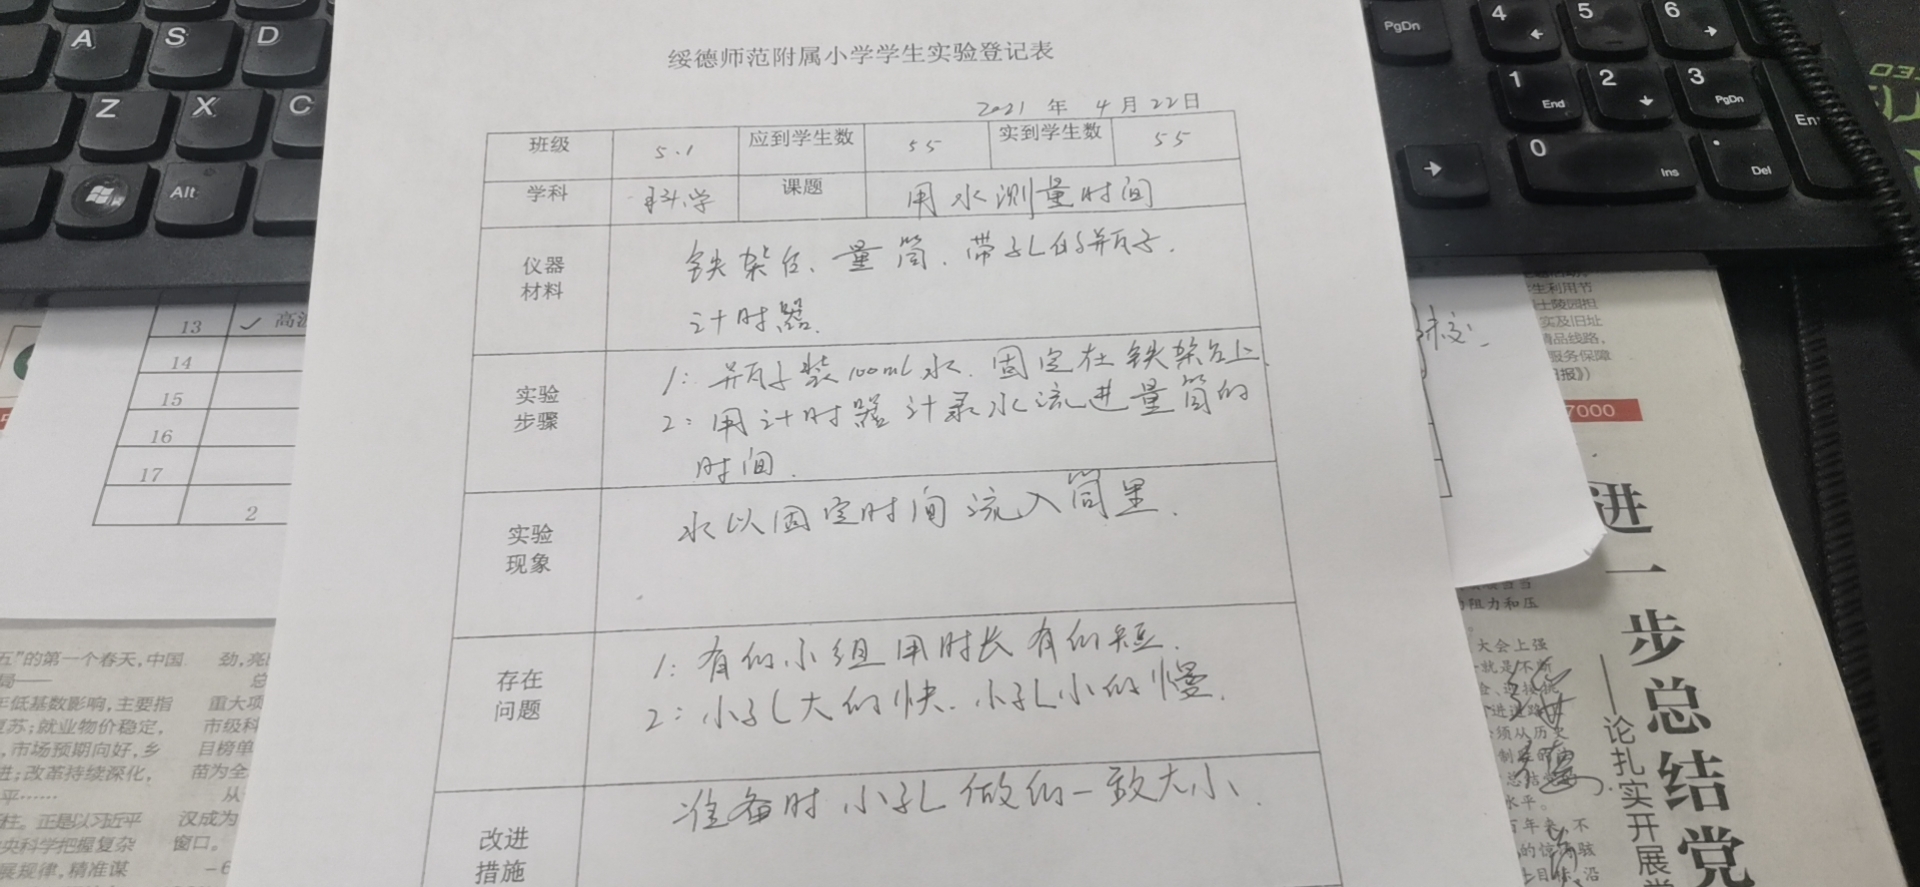 A S D
Z X C
Alt
PgDn
4 5 6
1 End 2 3 PgDn
0 Ins . Del
绥德师范附属小学学生实验登记表
2021 年 4 月 22 日
班级 5.1 应到学生数 55 实到学生数 55
学科 科学 课题 用水测量时间
仪器材料
铁架台、量筒、带孔的瓶子、
计时器.
实验步骤
1: 瓶子装100ml水.固定在铁架台上.
2: 用计时器计录水流进量筒的
时间.
实验现象
水以固定时间流入筒里.
存在问题
1: 有的小组用时长有的短.
2: 小孔大的快.小孔小的慢.
改进措施
准备时小孔做的一致大小.
13 ✓
14
15
16
17
2
五”的第一个春天,中国
年低基数影响,主要指
复苏;就业物价稳定,
,市场预期向好,乡
进;改革持续深化,
平……
柱。正是以习近平
央科学把握复杂
展规律,精准谋
重大项
市级科
目榜单
苗为全
从
汉成为
窗口。
7000
进一步总结党
——论扎实开展